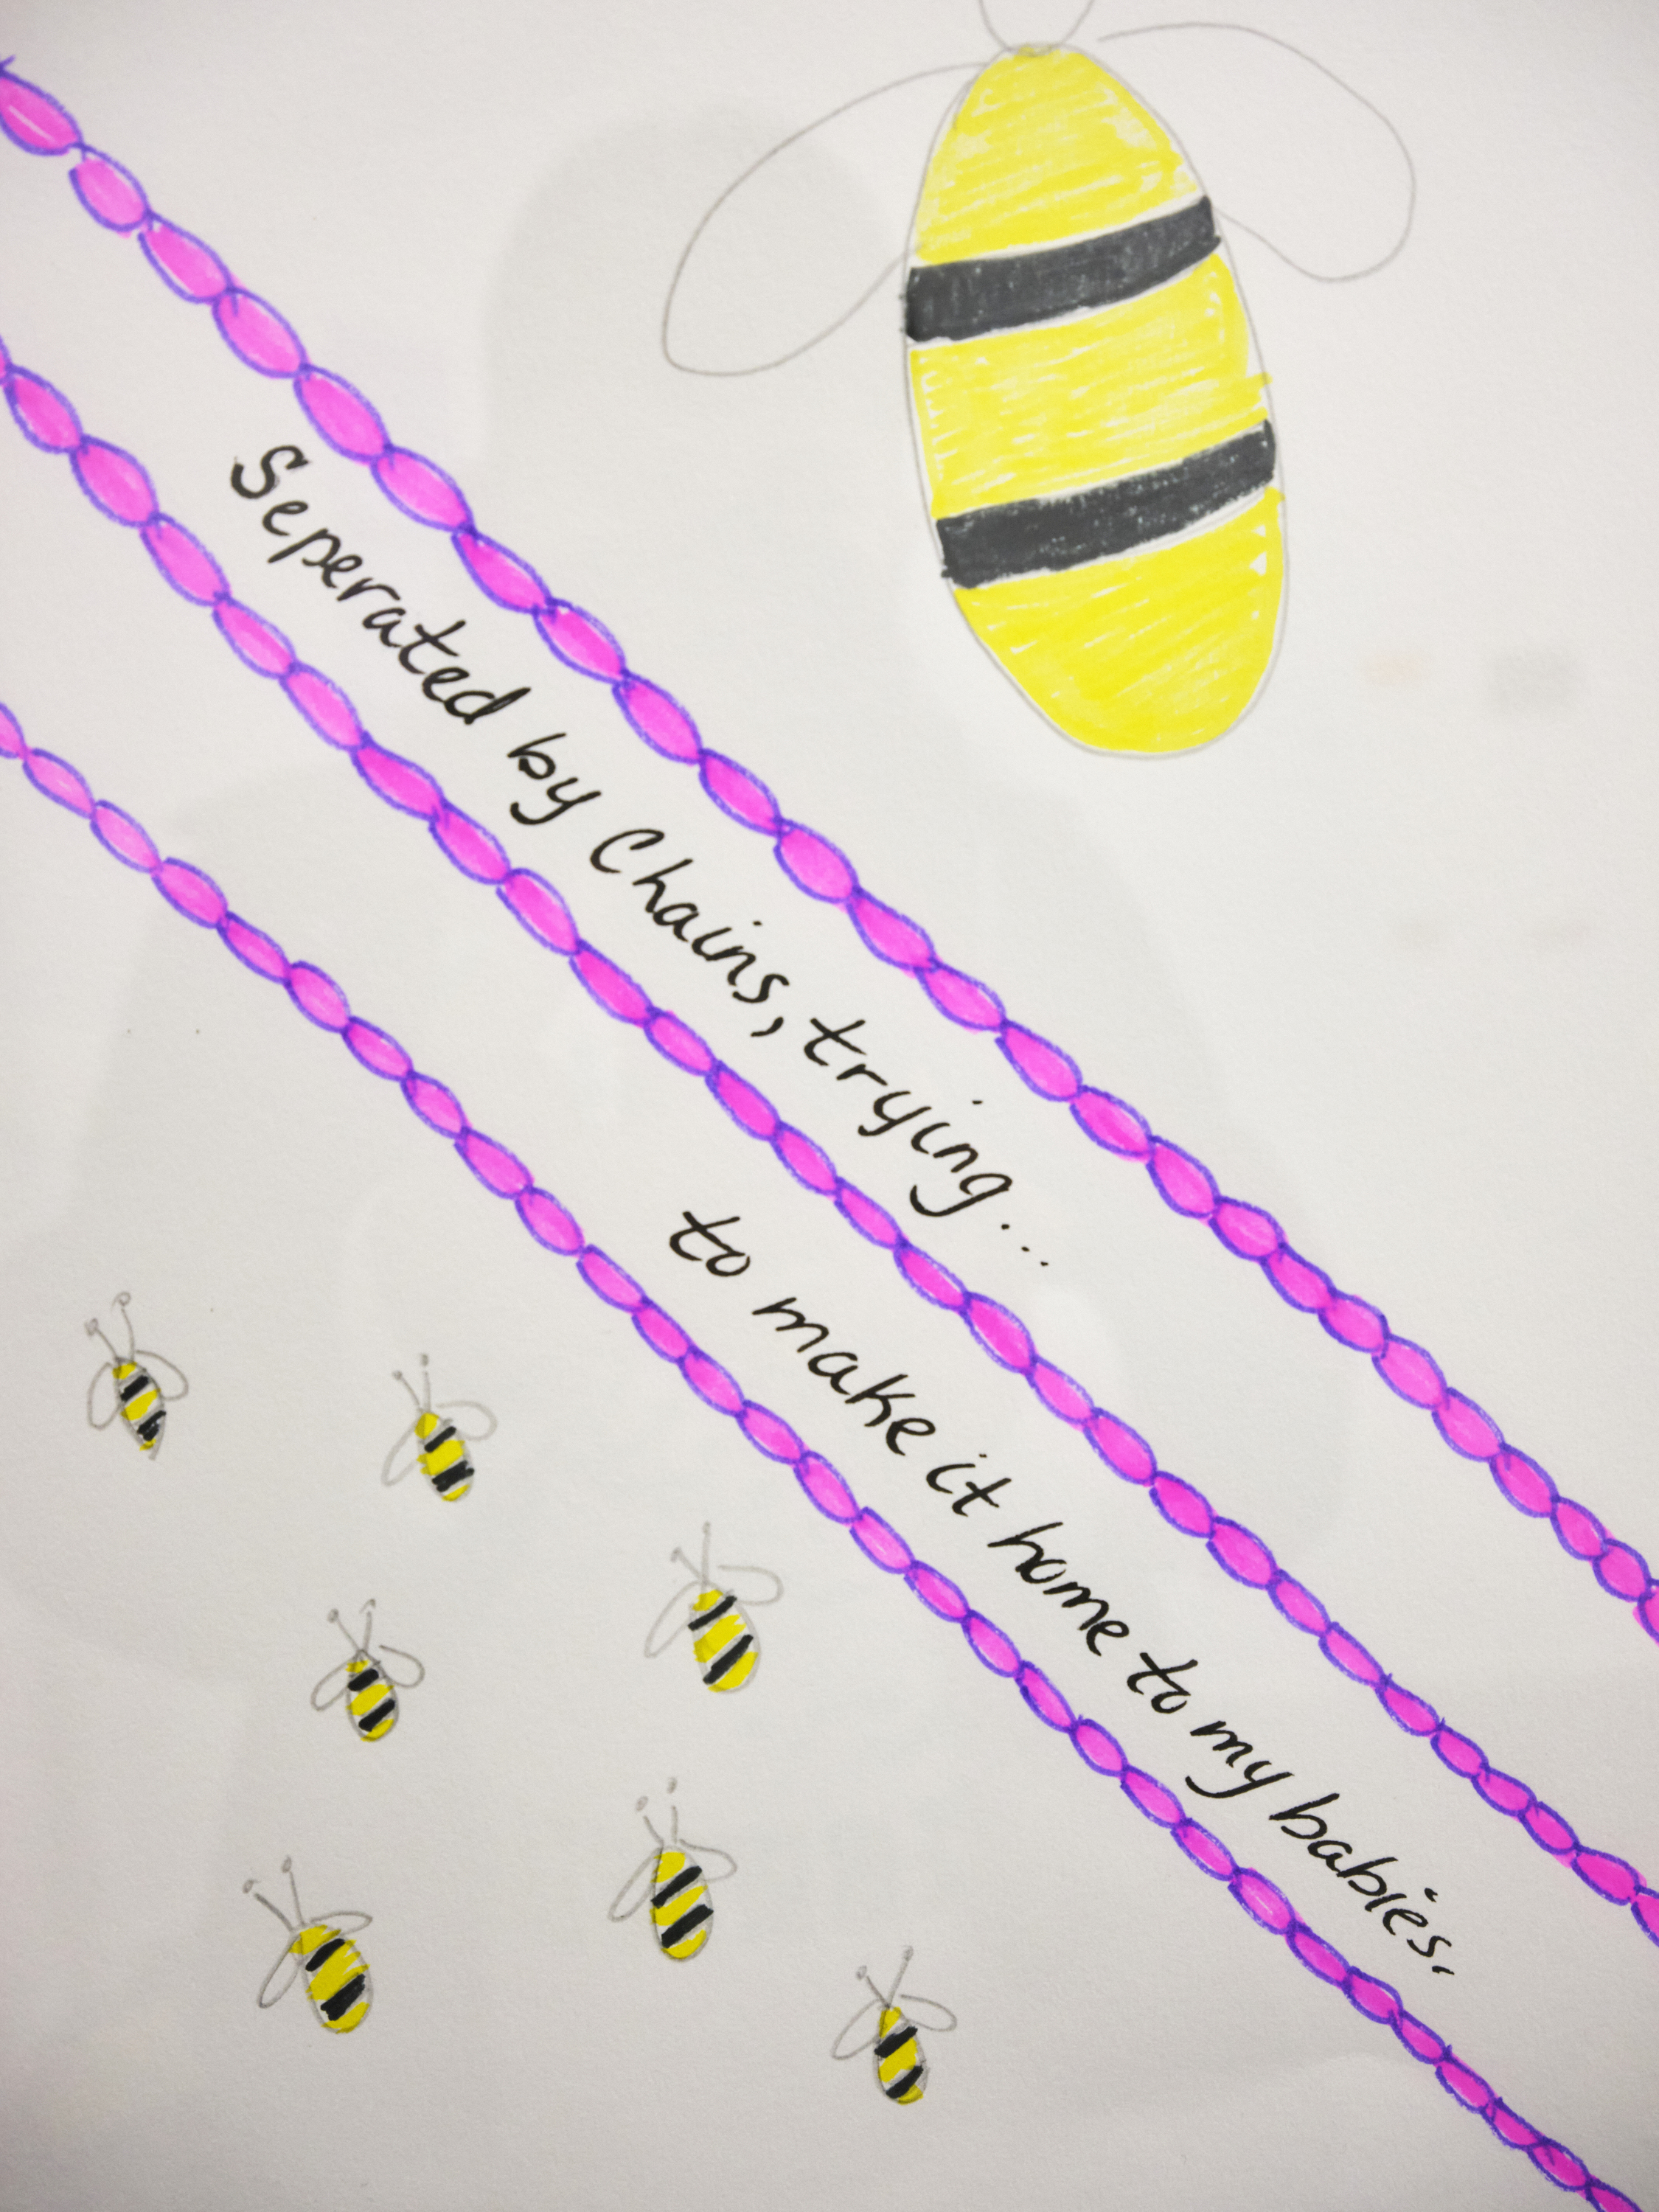 Seperated by Chains, trying...
to make it home to my babies.